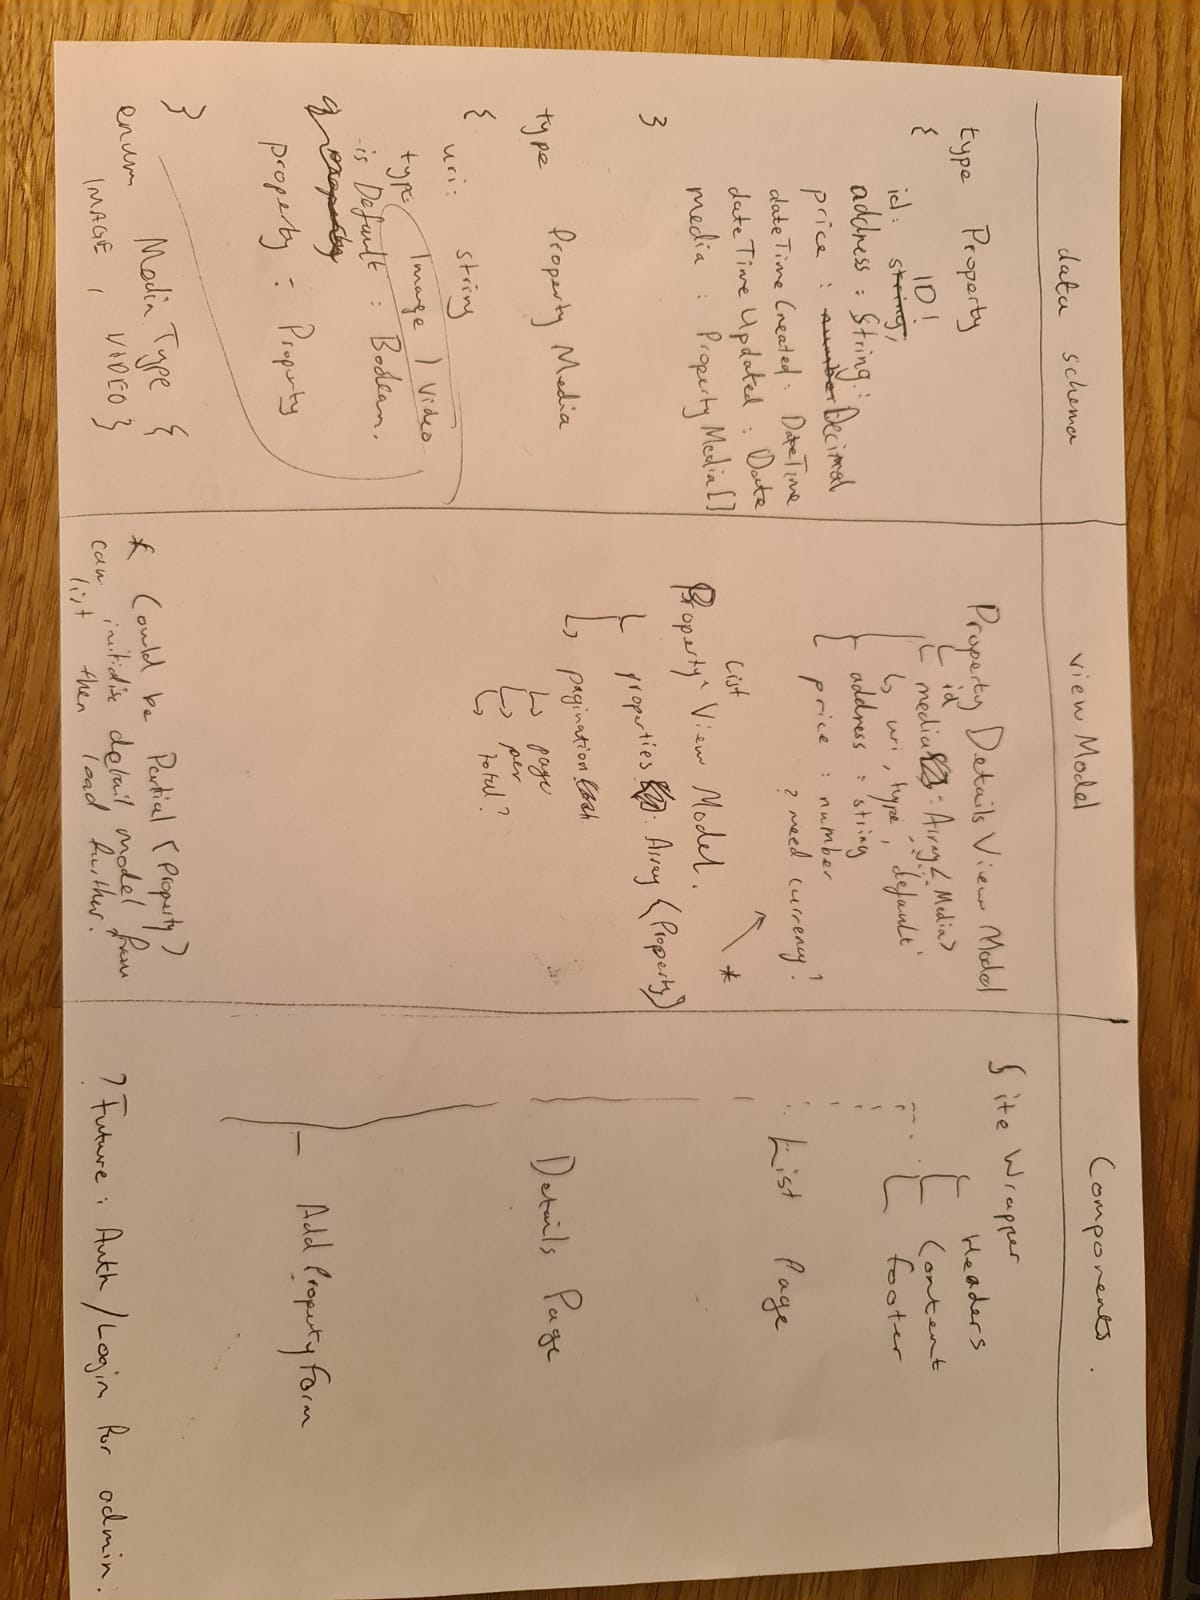 data schema
type Property
{
id: ID!
address: String!
price: Decimal
dateTimeCreated: DateTime
dateTimeUpdated: Date
media: PropertyMedia[]
}
type PropertyMedia
{
uri: string
type: Image | Video
isDefault: Boolean.
property: Property
}
enum MediaType {
IMAGE, VIDEO}
viewModel
Property Details View Model
id
media: Array<Media>
uri, type, default
address: string
price: number
? need currency?
*
Property List View Model.
properties: Array<Property>
pagination
page
per
total?
* Could be Partial<Property>
can initialise detail model from
list then load further.
Components.
Site Wrapper
Headers
Content
footer
List Page
Details Page
Add Property Form
? Future: Auth/Login for admin.